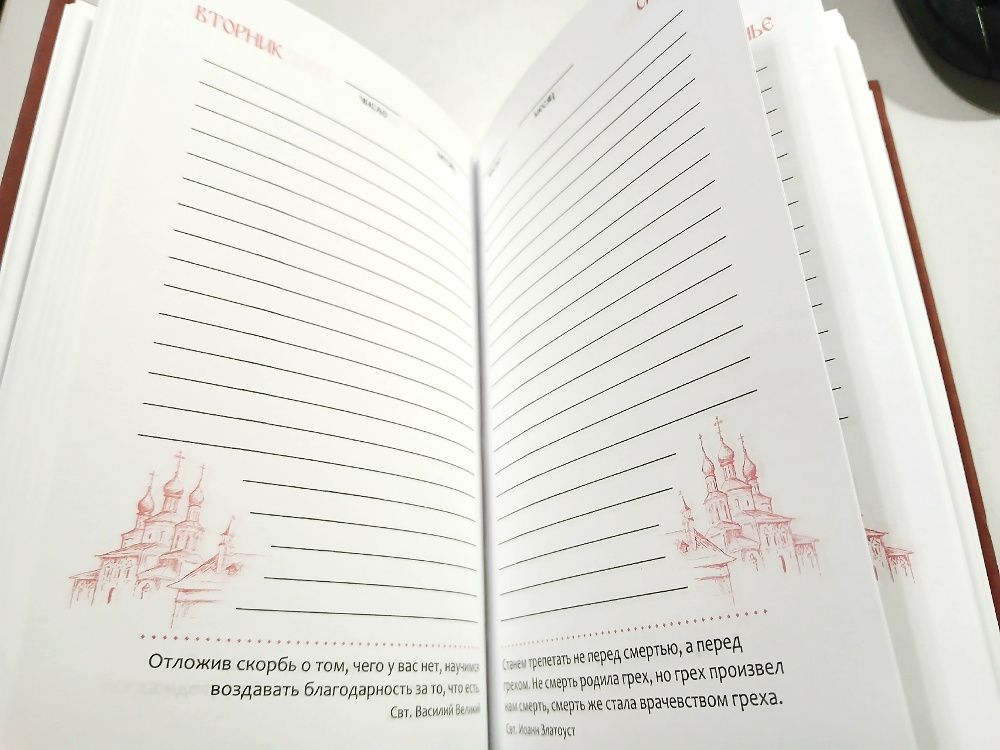 ВТОРНИК
число
Отложив скорбь о том, чего у вас нет, научимся
воздавать благодарность за то, что есть.
Свт. Василий Великий
Станем трепетать не перед смертью, а перед
грехом. Не смерть родила грех, но грех произвел
нам смерть, смерть же стала врачевством греха.
Свт. Иоанн Златоуст